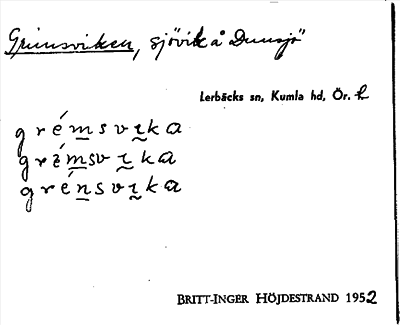 Grimsviken, sjövik å Dunsjö
Lerbäcks sn, Kumla hd, Ör. l.
grémsvıka
grímsvıka
grénsvıka
BRITT-INGER HÖJDESTRAND 1952